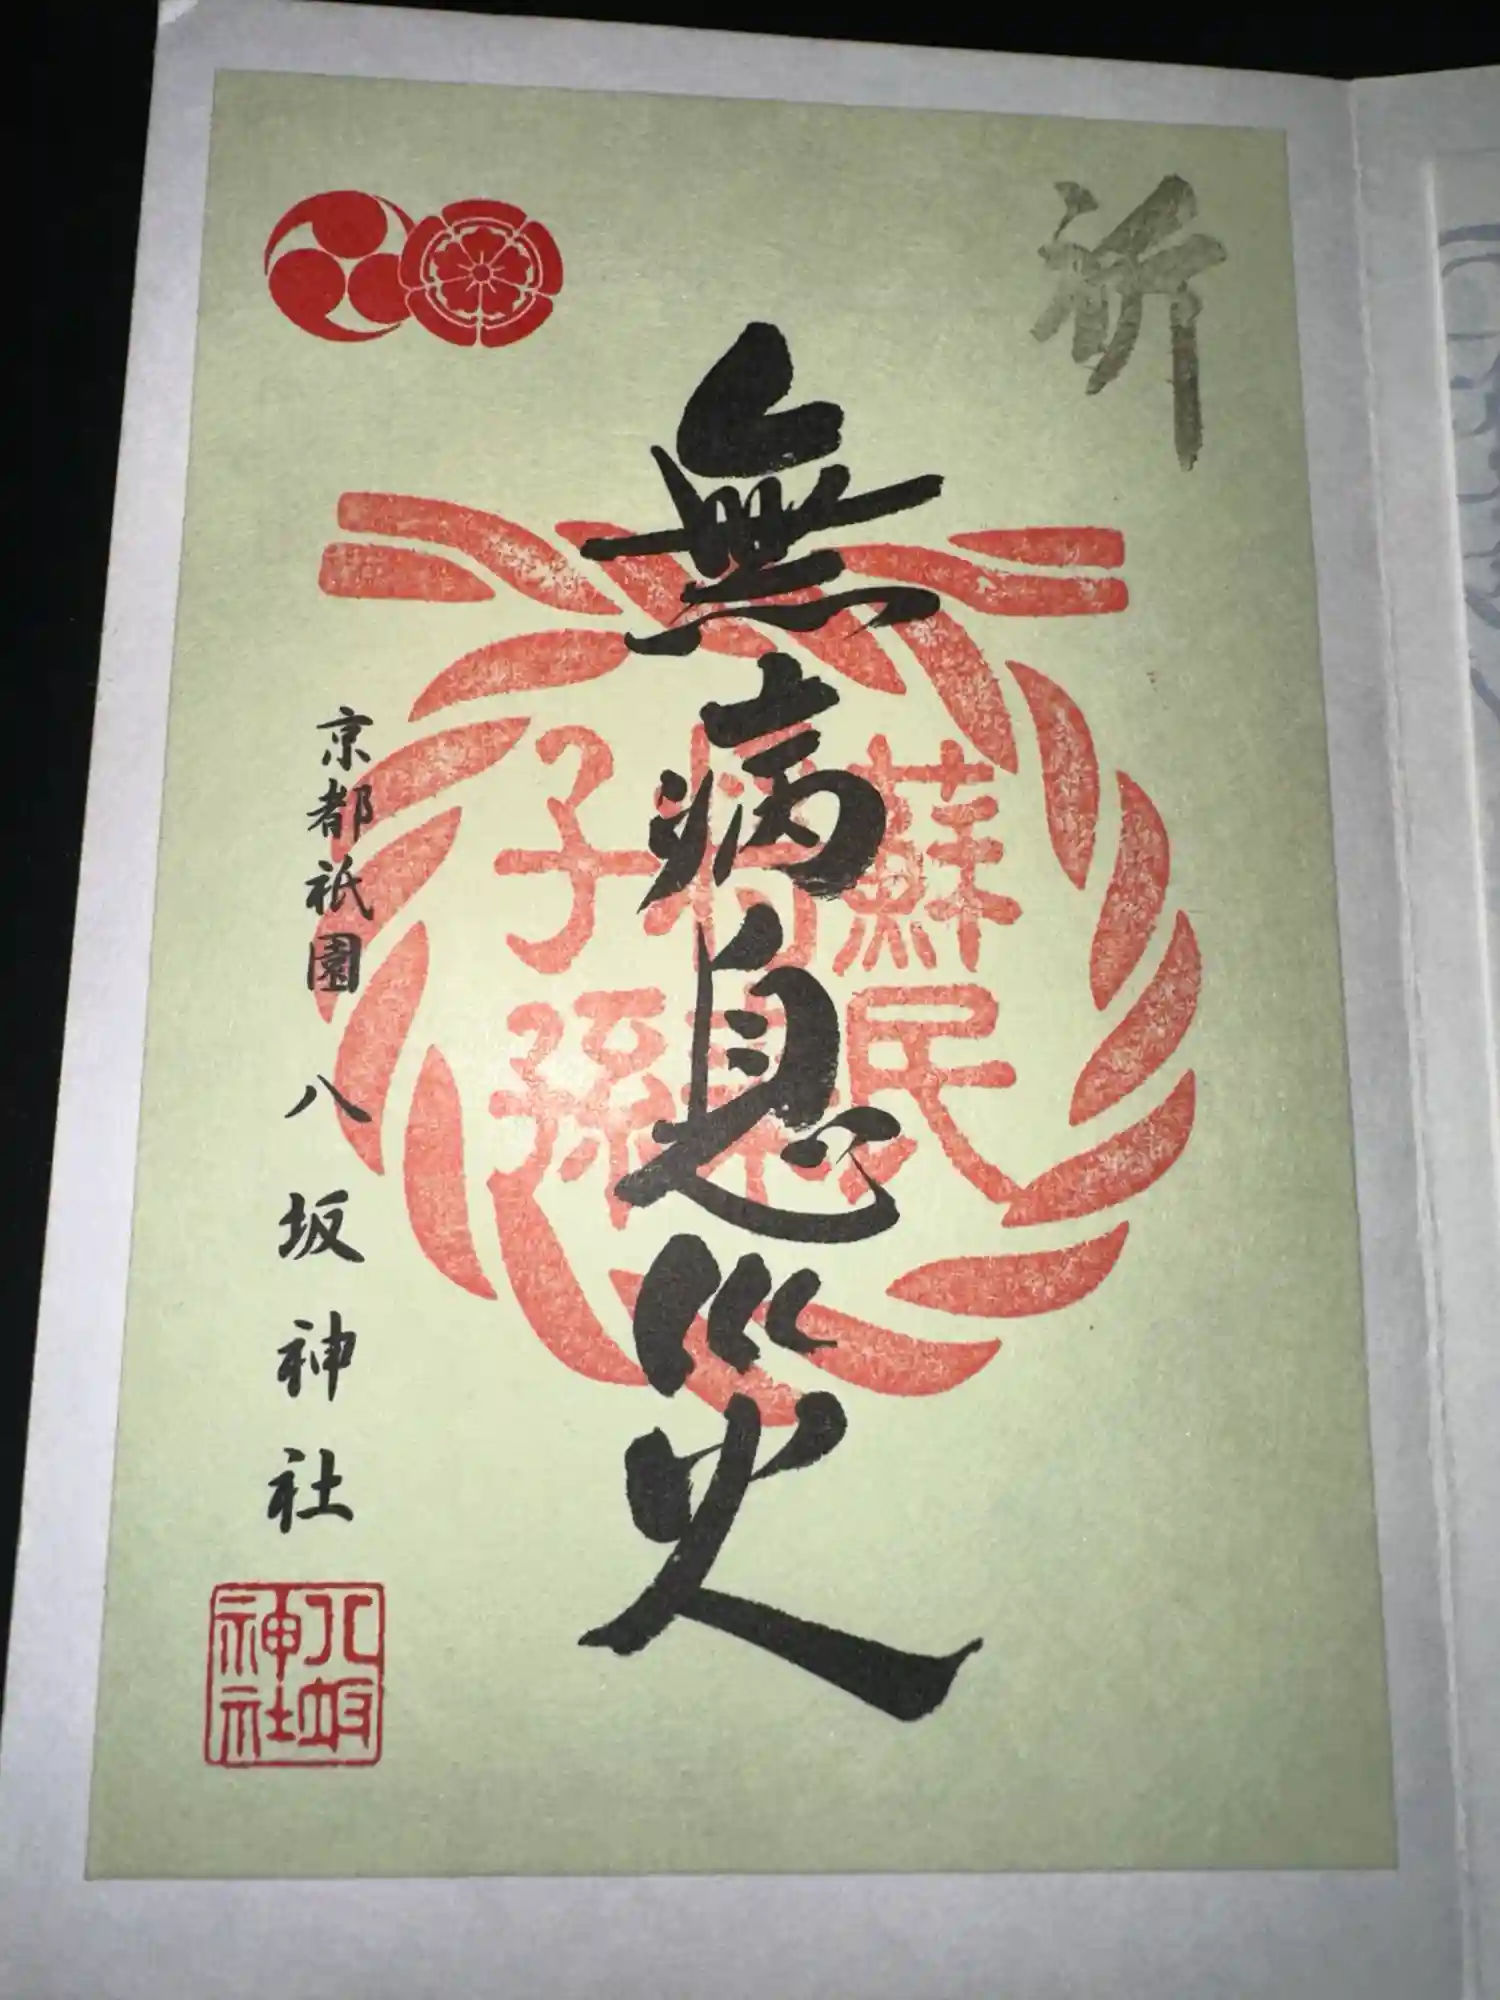 祈
無病息災
蘇民
将来
子孫
京都祇園
八坂神社
八坂
神社